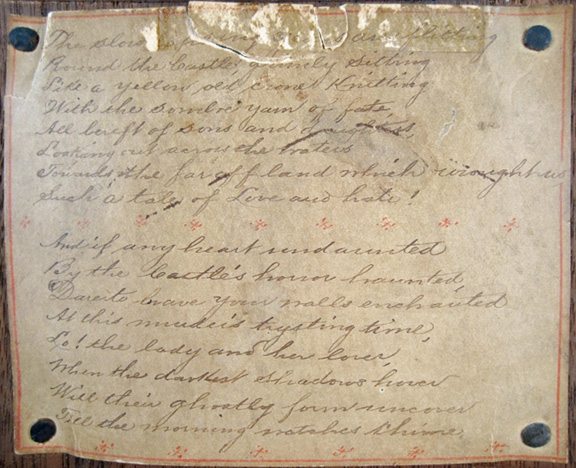 The slow
Round the Castle, lonely sitting
Like a yellow old crone knitting
With the sombre yarn of fate
All bereft of sons and
Looking out across the waters
Towards the far off land which wrought us
Such a tale of Love and hate!
And if any heart undaunted
By the Castle's horror haunted
Dare to brave your walls enchanted
At this murder's trysting time,
Lo! the lady and her lover,
When the darkest shadows hover
Will their ghostly form uncover
Till the morning watches chime